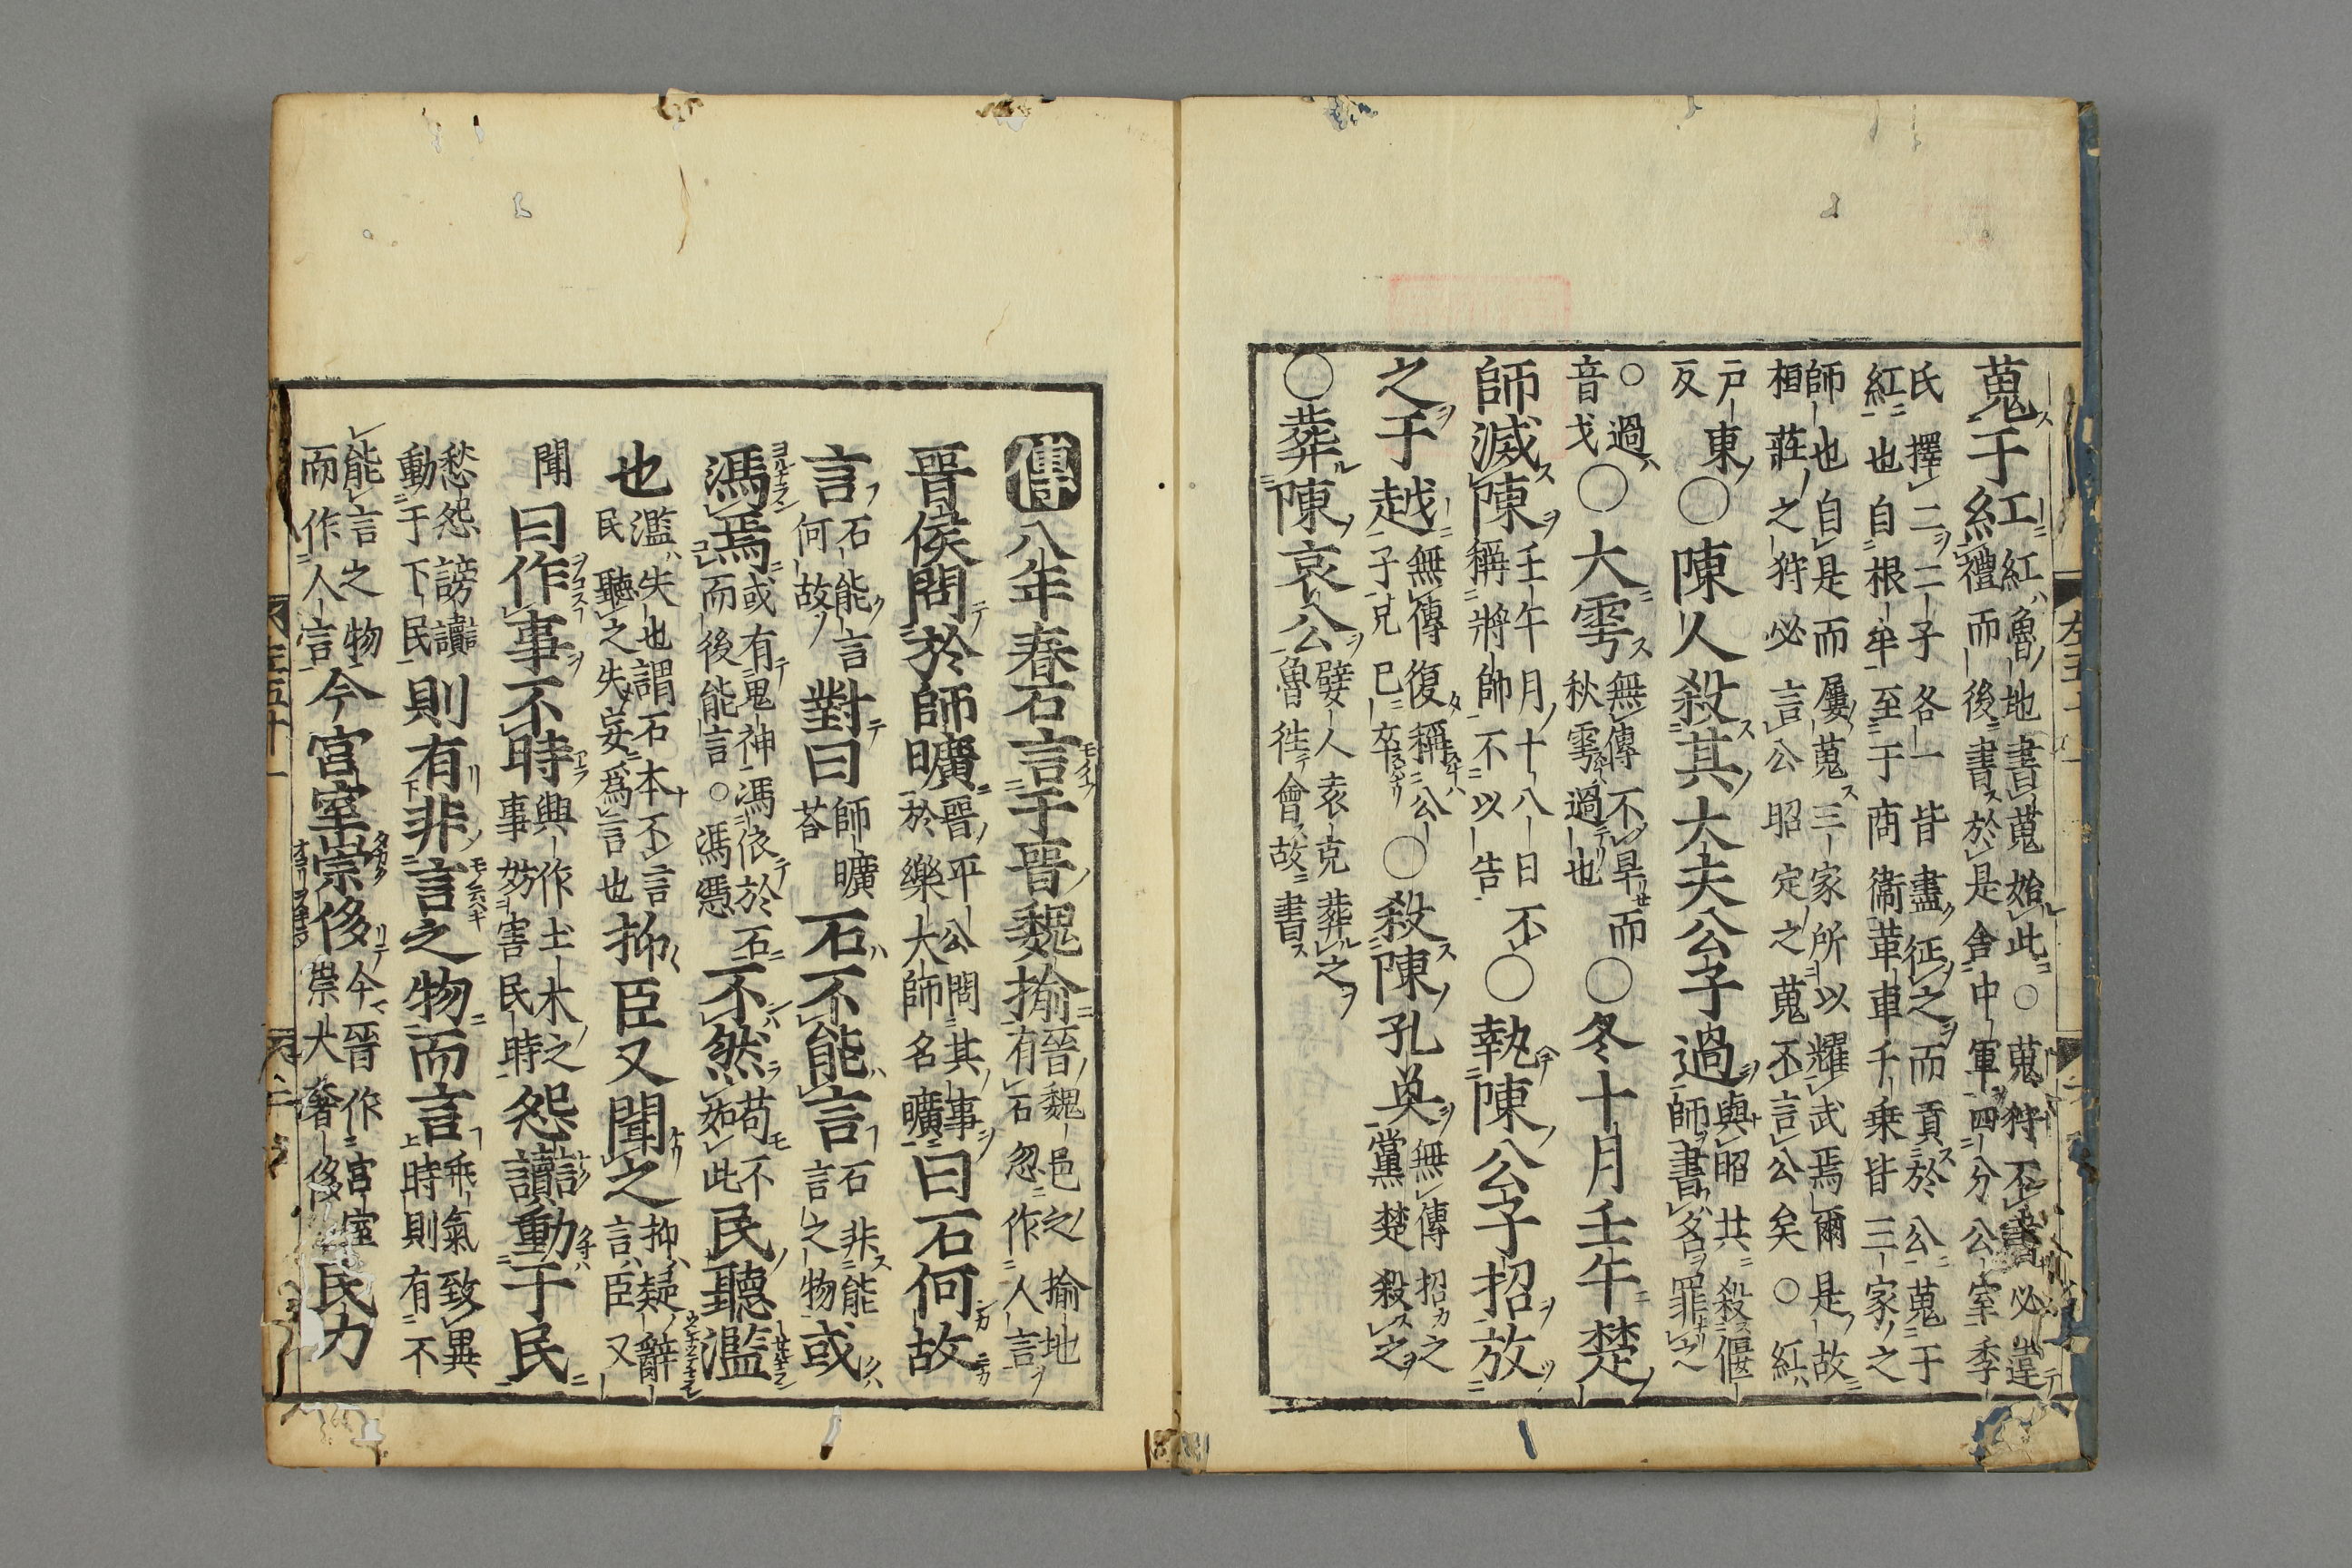 蒐于紅紅魯地書蒐始此○蒐狩不書書必違禮而後書於是舍中軍四分公室季
氏擇二二子各一皆盡征之而貢於公蒐于紅也自根牟至于商衞革車千乗皆三家之
師也自是而屢蒐三家所以耀武焉爾是故相莊之狩必言公昭定之蒐不言公矣○紅
戸東反○陳人殺其大夫公子過與昭共殺偃師書名罪之
○過音戈○大雩無傳不旱而秋雩過也○冬十月壬午楚
師滅陳壬午月十八日不稱將帥不以告○執陳公子招放
之于越無傳復稱公子兄已卒○殺陳孔奐無傳招之黨楚殺之
○葬陳哀公嬖人袁克葬之魯往會故書
傳八年春石言于晉魏揄晉魏邑之揄地有石忽作人言
晉侯問於師曠晉平公問其事於樂大師名曠曰石何故
言石能言何故對曰師曠荅石不能言石非能言之物或
馮焉或有鬼神馮依於石而後能言○馮憑不然苟不如此民聽濫
也濫失也謂石本不言民聽之失妄爲言也抑臣又聞之抑疑辭言臣又
聞曰作事不時興作土木之事妨害民時怨讟動于民
愁怨謗讟動于下民則有非言之物而言乖氣致異時則有不
能言之物而作人言今宮室崇侈今晉作宮室崇大奢侈民力